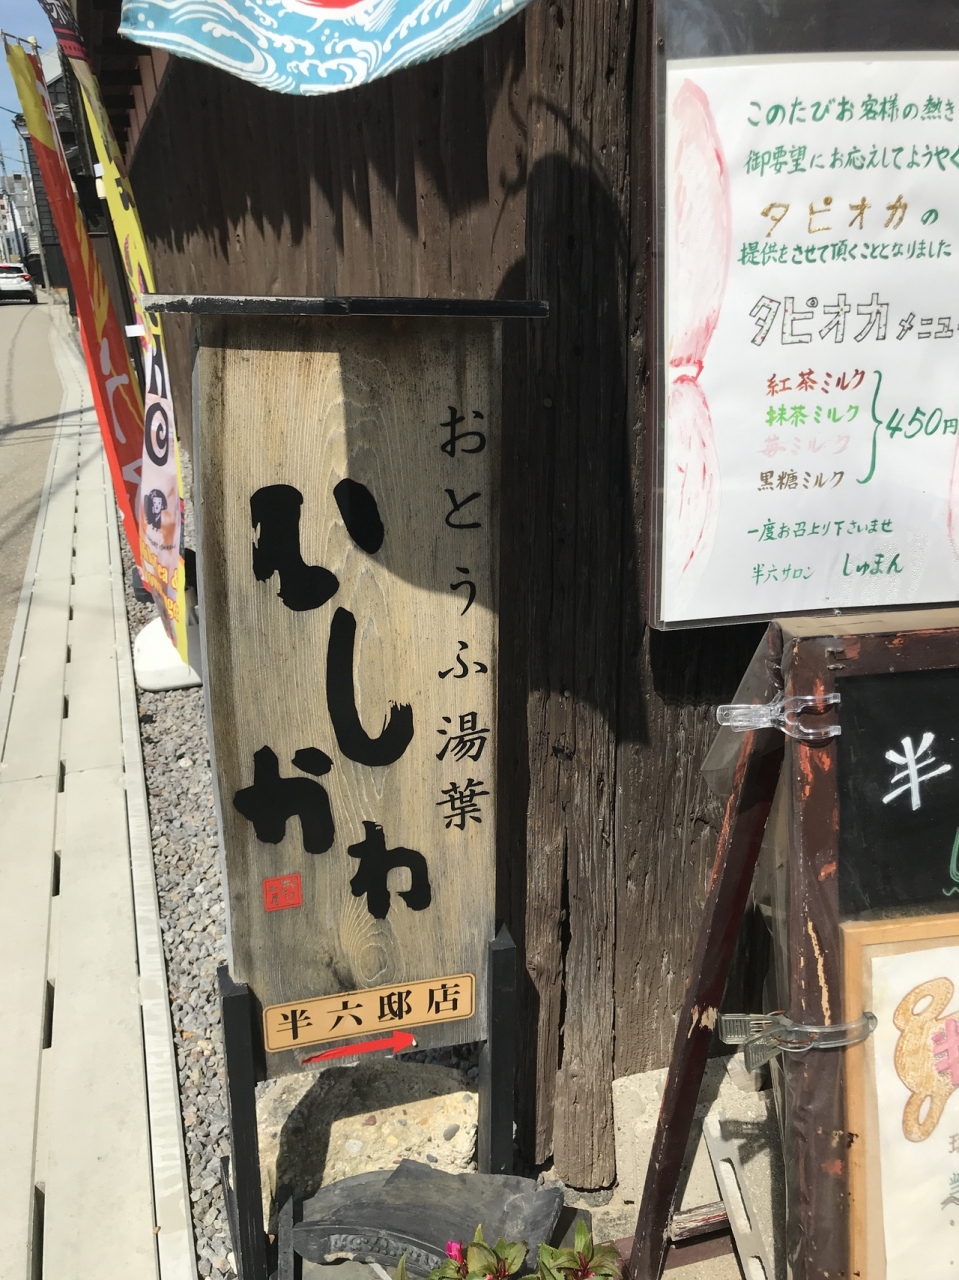 おとうふ湯葉
ひしかわ
半六邸店
このたびお客様の熱き
御要望にお応えしてようやく
タピオカの
提供をさせて頂くこととなりました
タピオカメニュー
紅茶ミルク
抹茶ミルク
苺ミルク
黒糖ミルク
450円
一度お召上り下さいませ
半六サロン しゅまん
半